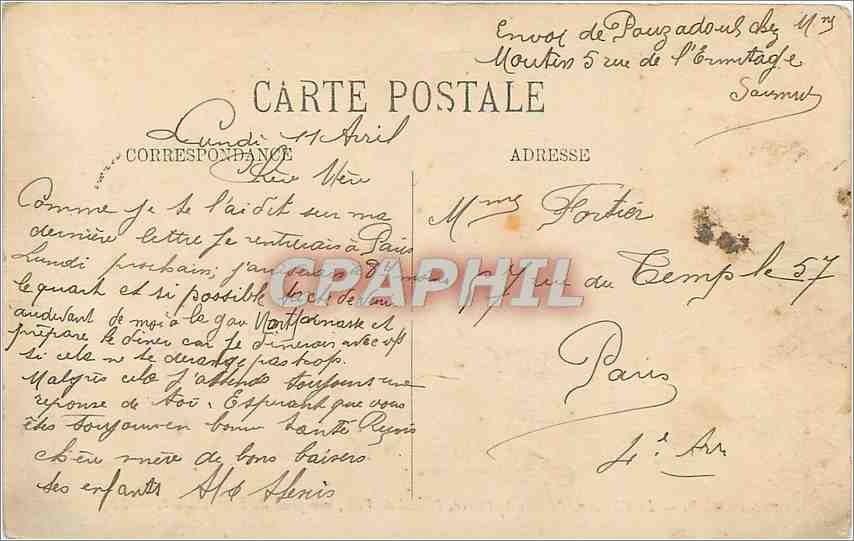 Envoi de Pouzadoul chez Mr
Moutins 5 rue de l'Ermitage
Saumur
CARTE POSTALE
Lundi 11 Avril
CORRESPONDANCE
ADRESSE
Chère Mère
Comme je te l'ai dit sur ma
dernière lettre je rentrerais à Paris
Lundi prochain, j'arriverais à 8h moins
le quart et si possible de venir
audevant de moi à la gare Montparnasse et
prépare le diner car je dinerais avec
si cela ne te derange pas trop.
Malgrès cela j'attends toujours une
reponse de toi. Esperant que vous
êtes toujours en bonne santé Reçois
chère mère de bons baisers
tes enfants
Mme Fortier
57 rue du Temple 57
Paris
4e Arr
CPAPHIL